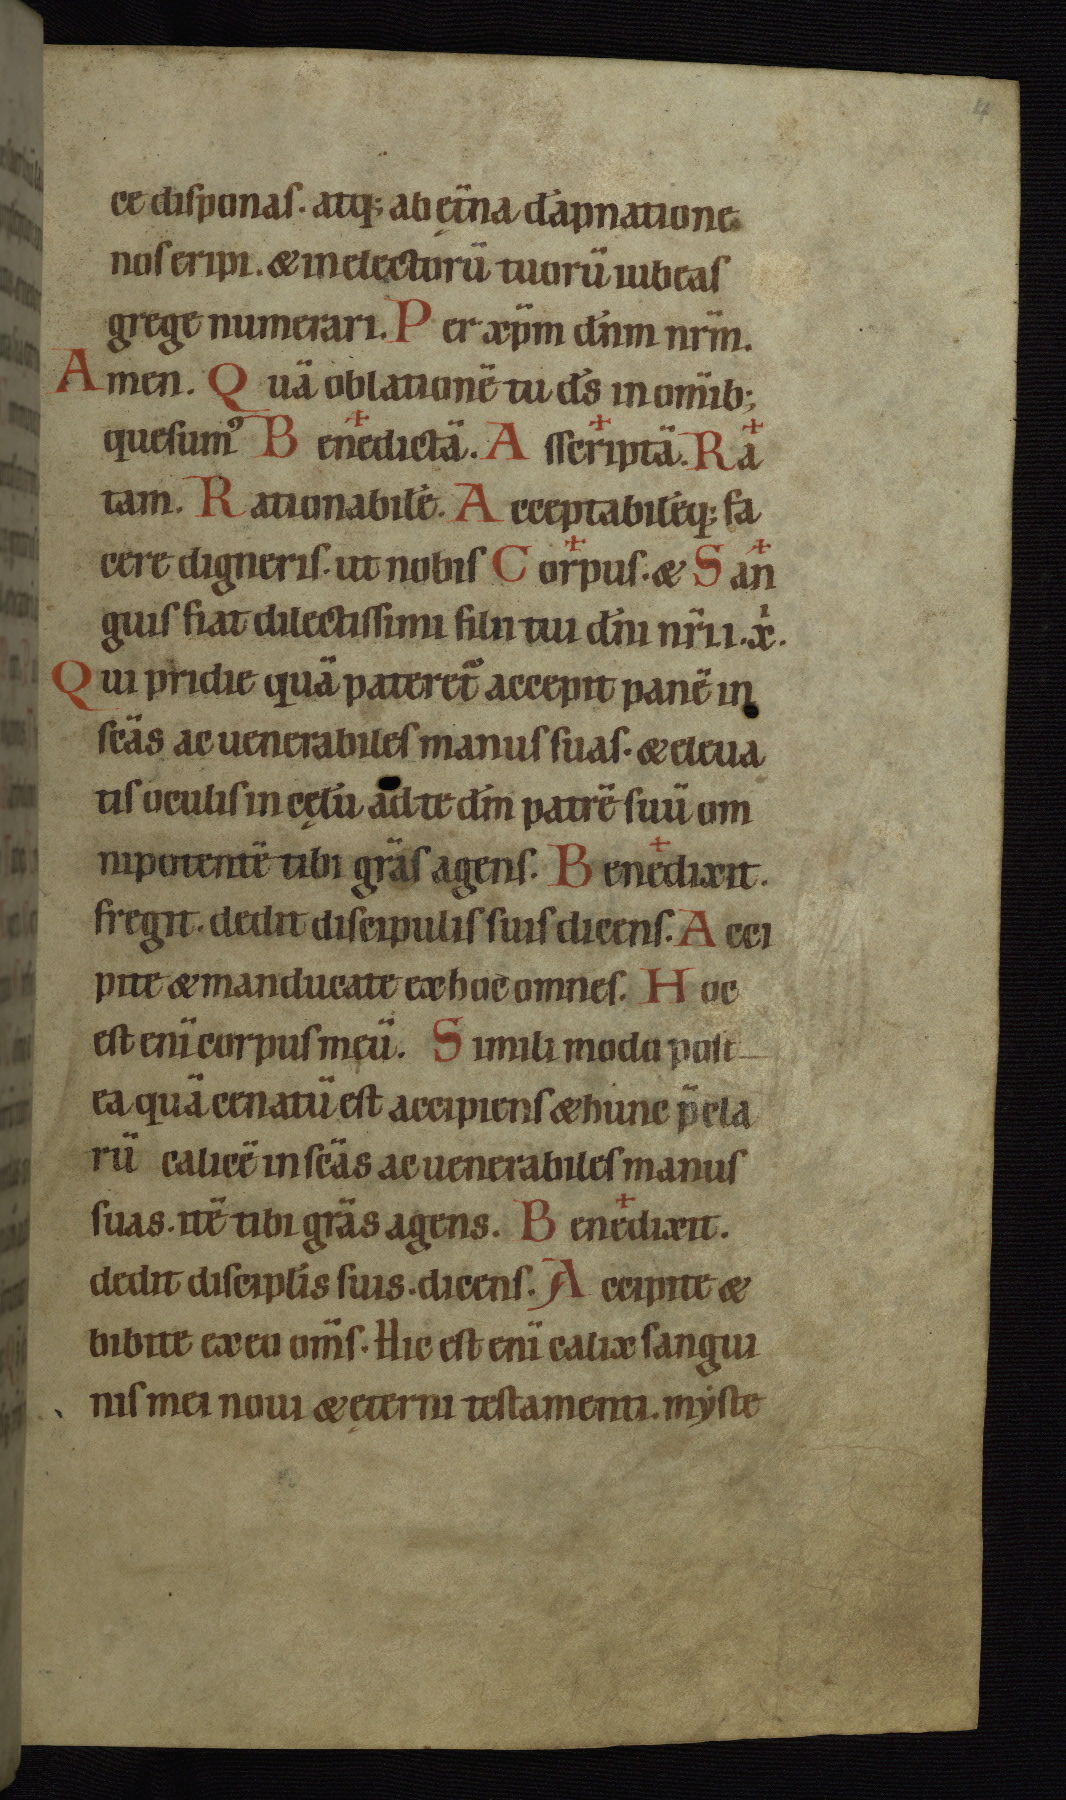 ce disponas. atq; ab ęt̄na dāpnatione
nos eripi. & in electorū tuorū iubeas
grege numerari. Per xp̄m dn̄m nr̄m.
Amen. Quā oblationē tu ds̄ in om̄ib;
quesumꝰ Bene✝dictā. Asscri✝ptā. Ra✝
tam. Rationabilē. Acceptabilēq; fa
cere digneris. ut nobis Cor✝pus. & San✝
guis fiat dilectissimi filii tui dn̄i nr̄i i. x̄.
Qui pridie quā pateret᷑ accepit panē in
scās ac uenerabiles manus suas. & eleua
tis oculis in cęlū ad te dm̄ patrē suū om
nipotentē tibi grās agens. Bene✝dixit.
fregit. dedit discipulis suis dicens. Acci
pite & manducate ex hoc omnes. Hoc
est enī corpus meū. Simili modo post
ea quā cenatū est accipiens & hunc p̄cla
rū calicē in scās ac uenerabiles manus
suas. itē tibi grās agens. Bene✝dixit.
dedit discipl̄is suis. dicens. Accipite &
bibite ex eo om̄s. Hic est enī calix sangui
nis mei noui & ęterni testamenti. myste